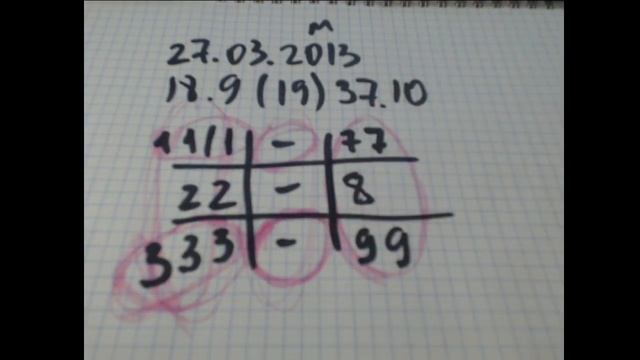 m
27.03.2013
18.9 (19) 37.10
1111 - 77
22 - 8
333 - 99